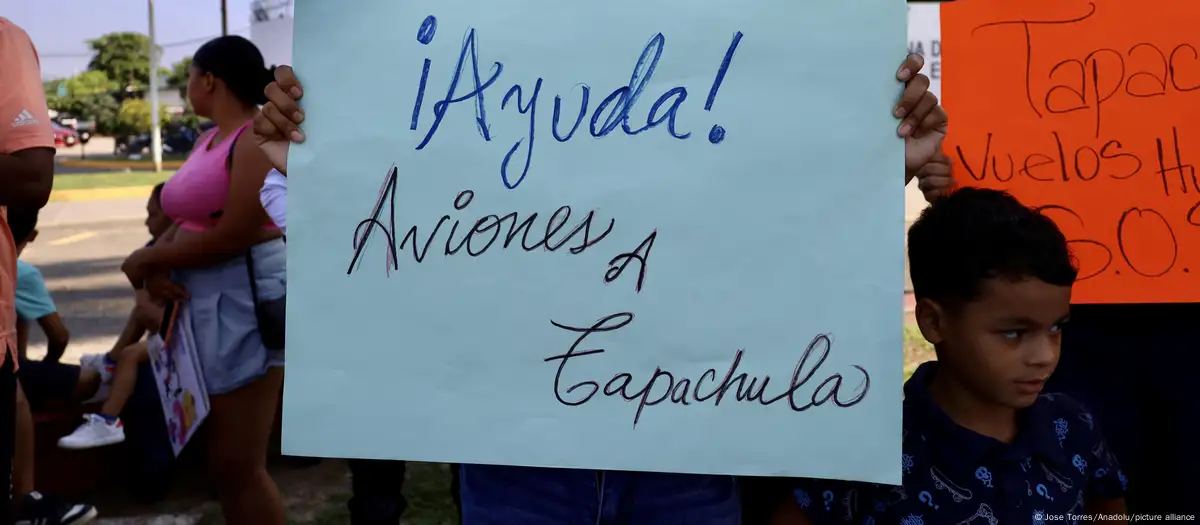 ¡Ayuda!
Aviones A
Tapachula
Tapac
Vuelos Hu
S.O.S
adidas
© Jose Torres/Anadolu/picture alliance